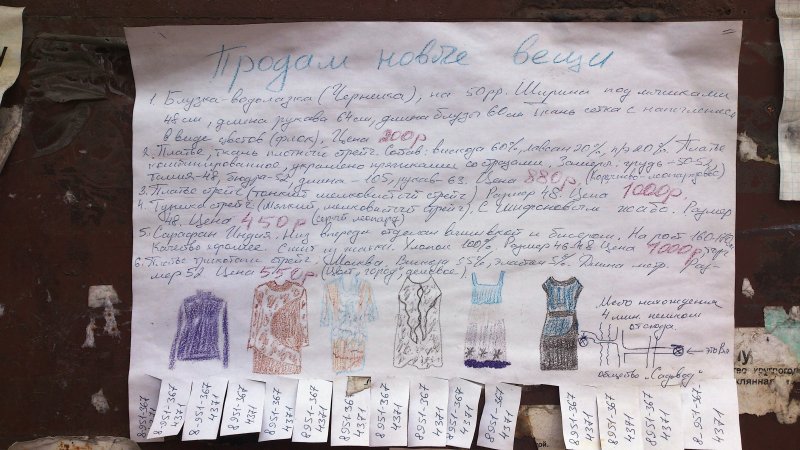 Продам новые вещи
1. Блузка-водолазка (Черника), на 50рр. Ширина под мышками
48см, длина рукава 64см, длина блузы 60см Ткань сетка с напылением
в виде цветов (флок). Цена 200р
2. Платье, ткань плотный стрейч. Состав: вискоза 60%, лавсан 20%, п/э 20%. Платье
комбинированное, украшено пряжками обтразами. Замеры: грудь-50-52,
талия-48, бедра-52, длина-105, рукав-63. Цена 880р (коричнево-леопардовое)
3. Платье стрейч (тонкий шелковистый стрейч) Размер 48. Цена 1000р.
4. Туника стрейч (мягкий, шелковистый стрейч), С шифоновым жабо. Размер
48. Цена 450р (серый леопард)
5. Сарафан Индия. Низ впереди отделан вышивкой и бисером. На рост 160-170
Качество хорошее. Сшит из ткани Хлопок 100%. Размер 46-48 Цена 1000р
6. Платье трикотаж стрейч. Москва. Вискоза 95%, эластан 5%. Длина метр. Раз-
мер 52 Цена 550р (Цвет "город" деловое)
Место нахождения
4 мин. пешком
это Вы
Общество "Садовод"
8951-367
4371
8951-367
4371
8951-367
4371
8951-367
4371
8951-367
4371
8951-367
4371
8951-367
4371
8951-367
4371
8951-367
4371
8951-367
4371
8951-367
4371
8951-367
4371
8951-367
4371
8951-367
4371